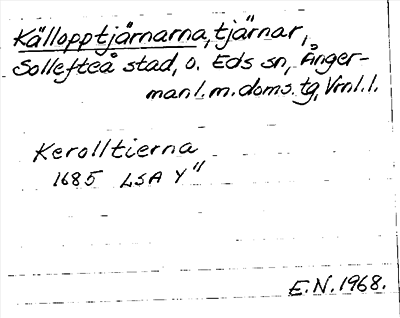 Källopptjärnarna, tjärnar,
Sollefteå stad, o. Eds sn, Ånger-
manl. m. doms. tg, Vrnl. l.
Kerolltierna
1685 LSA Y"
E.N. 1968.